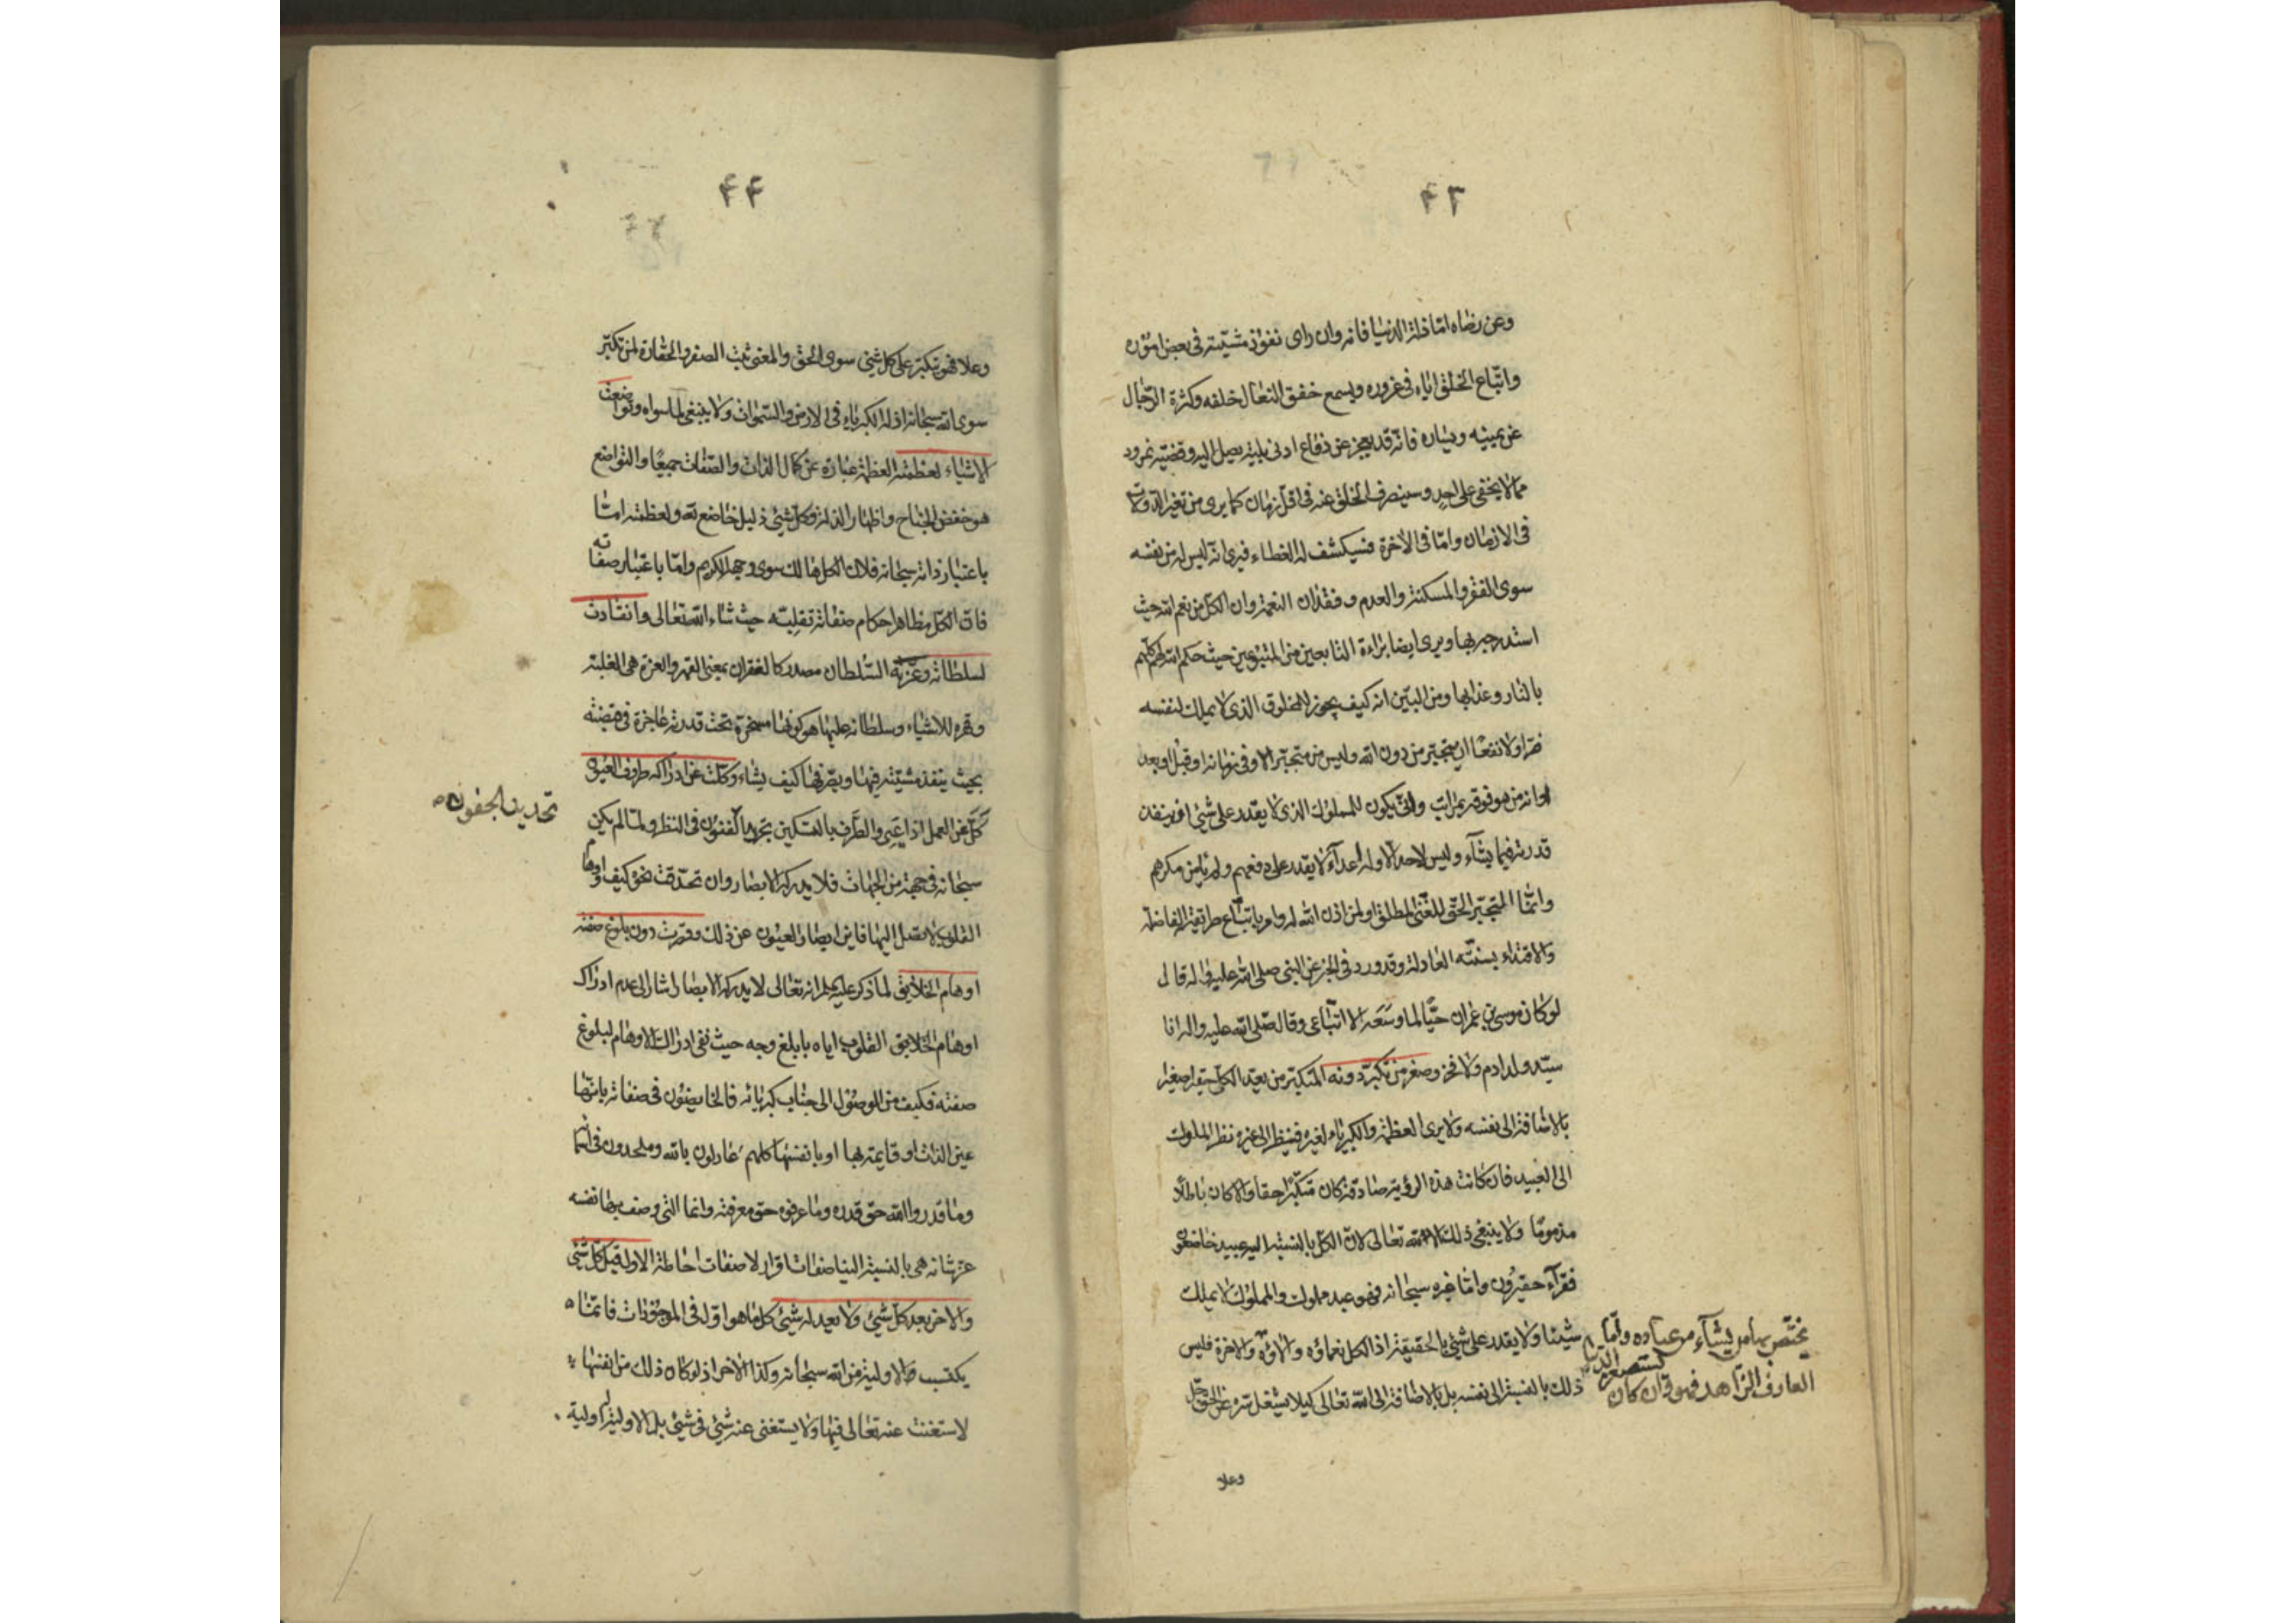 ۴۳
وعن رضاه امّا في الدنيا فانه وان رای نفوذ مشيّته في بعض اموره
واتّباع الخلق ايّاه في غروره ويسمع خفق النعال خلفه وكثرة الرّجال
عن يمينه ويساره فانّه قد يعجز عن دفاع ادنى بليّة يصل اليه وقضيّة نمرود
ممّا لا يخفى على احد وسينصرف الخلق عنه في اقلّ زمان كما يرى من تغيّر الدولات
في الازمان وامّا في الاخرة فسيكشف له الغطاء فيرى انّه ليس له من نفسه
سوى الفقر والمسكنة والعدم وفقدان النعمة وان الكلّ من نعم الله حيث
استدرجه بها ويرى ايضا براءة التابعين من المتبوعين حيث حكم الله لهم كلّهم
بالنار وعذابها ومن البيّن انه كيف يجوز للمخلوق الذي لا يملك لنفسه
ضرّا ولا نفعا ان يتجبّر من دون الله وليس من متجبّر الا وفي زمانه او قبل او بعد
اوانه من هو فوقه بمراتب وانّى يكون للمملوك الذي لا يقدر على شئ ان ينفذ
قدرته فيما يشاء وليس لاحد الا وله اعداء لا يقدر على دفعهم ولم يامن مكرهم
وانّما المتجبّر الحقّ للغنيّ المطلق او لمن اذن الله له وامر باتّباع طريقته الفاضلة
والاقتداء بسنّته العادلة وقد ورد في الخبر عن النبي صلى الله عليه وآله قال
لو كان موسى بن عمران حيّا لما وسعه الا اتّباعي وقال صلى الله عليه واله انا
سيّد ولد ادم ولا فخر وصغر من تكبّر دونه المتكبّر من يعدّ الكل حقيرا صغيرا
بالاضافة الى نفسه ولا يرى العظمة والكبرياء لغيره فينظر الى غيره نظر الملوك
الى العبيد فان كانت هذه الرؤية صادقة كان متكبّرا حقا والا كان باطلا
مذموما ولا ينبغي ذلك الا لله تعالى لان الكلّ بالنسبة اليه عبيد خاضعون
فقرآء حقيرون وامّا غيره سبحانه فهو عبد مملوك والمملوك لا يملك
شيئا ولا يقدر على شئ بالحقيقة اذ الكل نعماؤه وآلاؤه والاخرة فليس
ذلك بالنسبة الى نفسه بل بالاضافة الى الله تعالى كيلا يشتغل سرّه عن الحق جل
يختصّ بها من يشآء من عباده وامّا
يستصغر الدنيا
العارف الزّاهد فهو وان كان
وعلا
۴۴
وعلا فهو تكبّر على كل شئ سوى الحق والمعنى ثبت الصغر والحقارة لمن تكبّر
سوى الله سبحانه اذ له الكبرياء في الارض والسّموات ولا ينبغي لما سواه وتواضعت
الاشياء لعظمته العظمة عبارة عن كمال الذات والصّفات جميعا والتواضع
هو خفض الجناح واظهار الذلة وكلّ شئ ذليل خاضع لله ولعظمته امّا
باعتبار ذاته سبحانه فلان الكل هالك سوى وجهه الكريم وامّا باعتبار صفاته
فان الكلّ مظاهر احكام صفاته تقلبه حيث شاء الله تعالى وانقادت
لسلطانه وعزّته السّلطان مصدر كالغفران بمعنى القهر والعزة هي الغلبة
وقهره للاشياء وسلطانه عليها هو كونها مسخرة تحت قدرته عاجزة في قبضته
بحيث ينفذ مشيّته فيها ويصرفها كيف يشاء وكلّت عن ادراكه طروف العيون
كلّ عن العمل اذا عيي والطرف بالتسكين تحريك الجفون في النظر ولمّا لم يكن
سبحانه في جهة من الجهات فلا يدركه الابصار وان تحدّقت نحو كيف اوهام
القلوب لا تصل اليها فاين ابصار العيون عن ذلك وقصرت دون بلوغ صفته
اوهام الخلايق لما ذكر عليه السلم انه تعالى لا يدركه الابصار اشار الى عدم ادراك
اوهام الخلايق القلوب اياه بابلغ وجه حيث نفى ادراك الاوهام لبلوغ
صفته فكيف من الوصول الى جناب كبريائه فالخائضون في صفاته بانّها
عين الذات او قايمة بها او بانفسها كلهم عادلون بالله وملحدون في اسمائه
وما قدروا الله حق قدره وما عرفوه حق معرفته وانما التي وصف بها نفسه
عزّ شانه هي بالنسبة الينا صفات اقرار لا صفات احاطة الاول قبل كل شئ
والاخر بعد كل شئ ولا يعدله شئ كل ما هو اوّل في الموجودات فانّما
يكتسب الاولية من الله سبحانه وكذا الاخر اذ لو كان ذلك من انفسها
لاستغنت عنه تعالى فيها ولا يستغنى عنه شئ في شئ بل الاولية اولية
تحديد الجفون